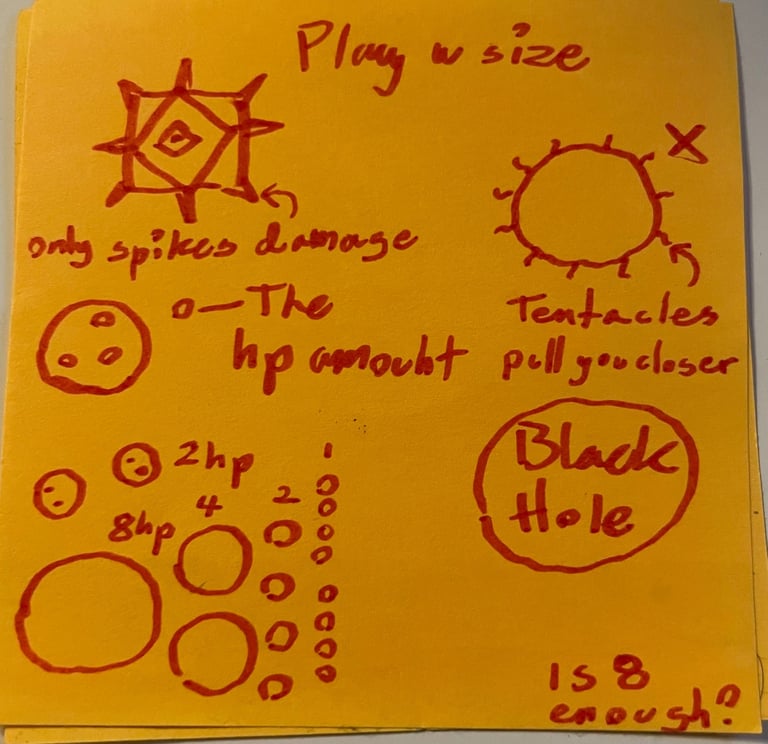 Play w size
X
only spikes damage
o—The
hp amount
Tentacles
pull you closer
Black
Hole
2hp
1
8hp 4 2
is 8
enough?